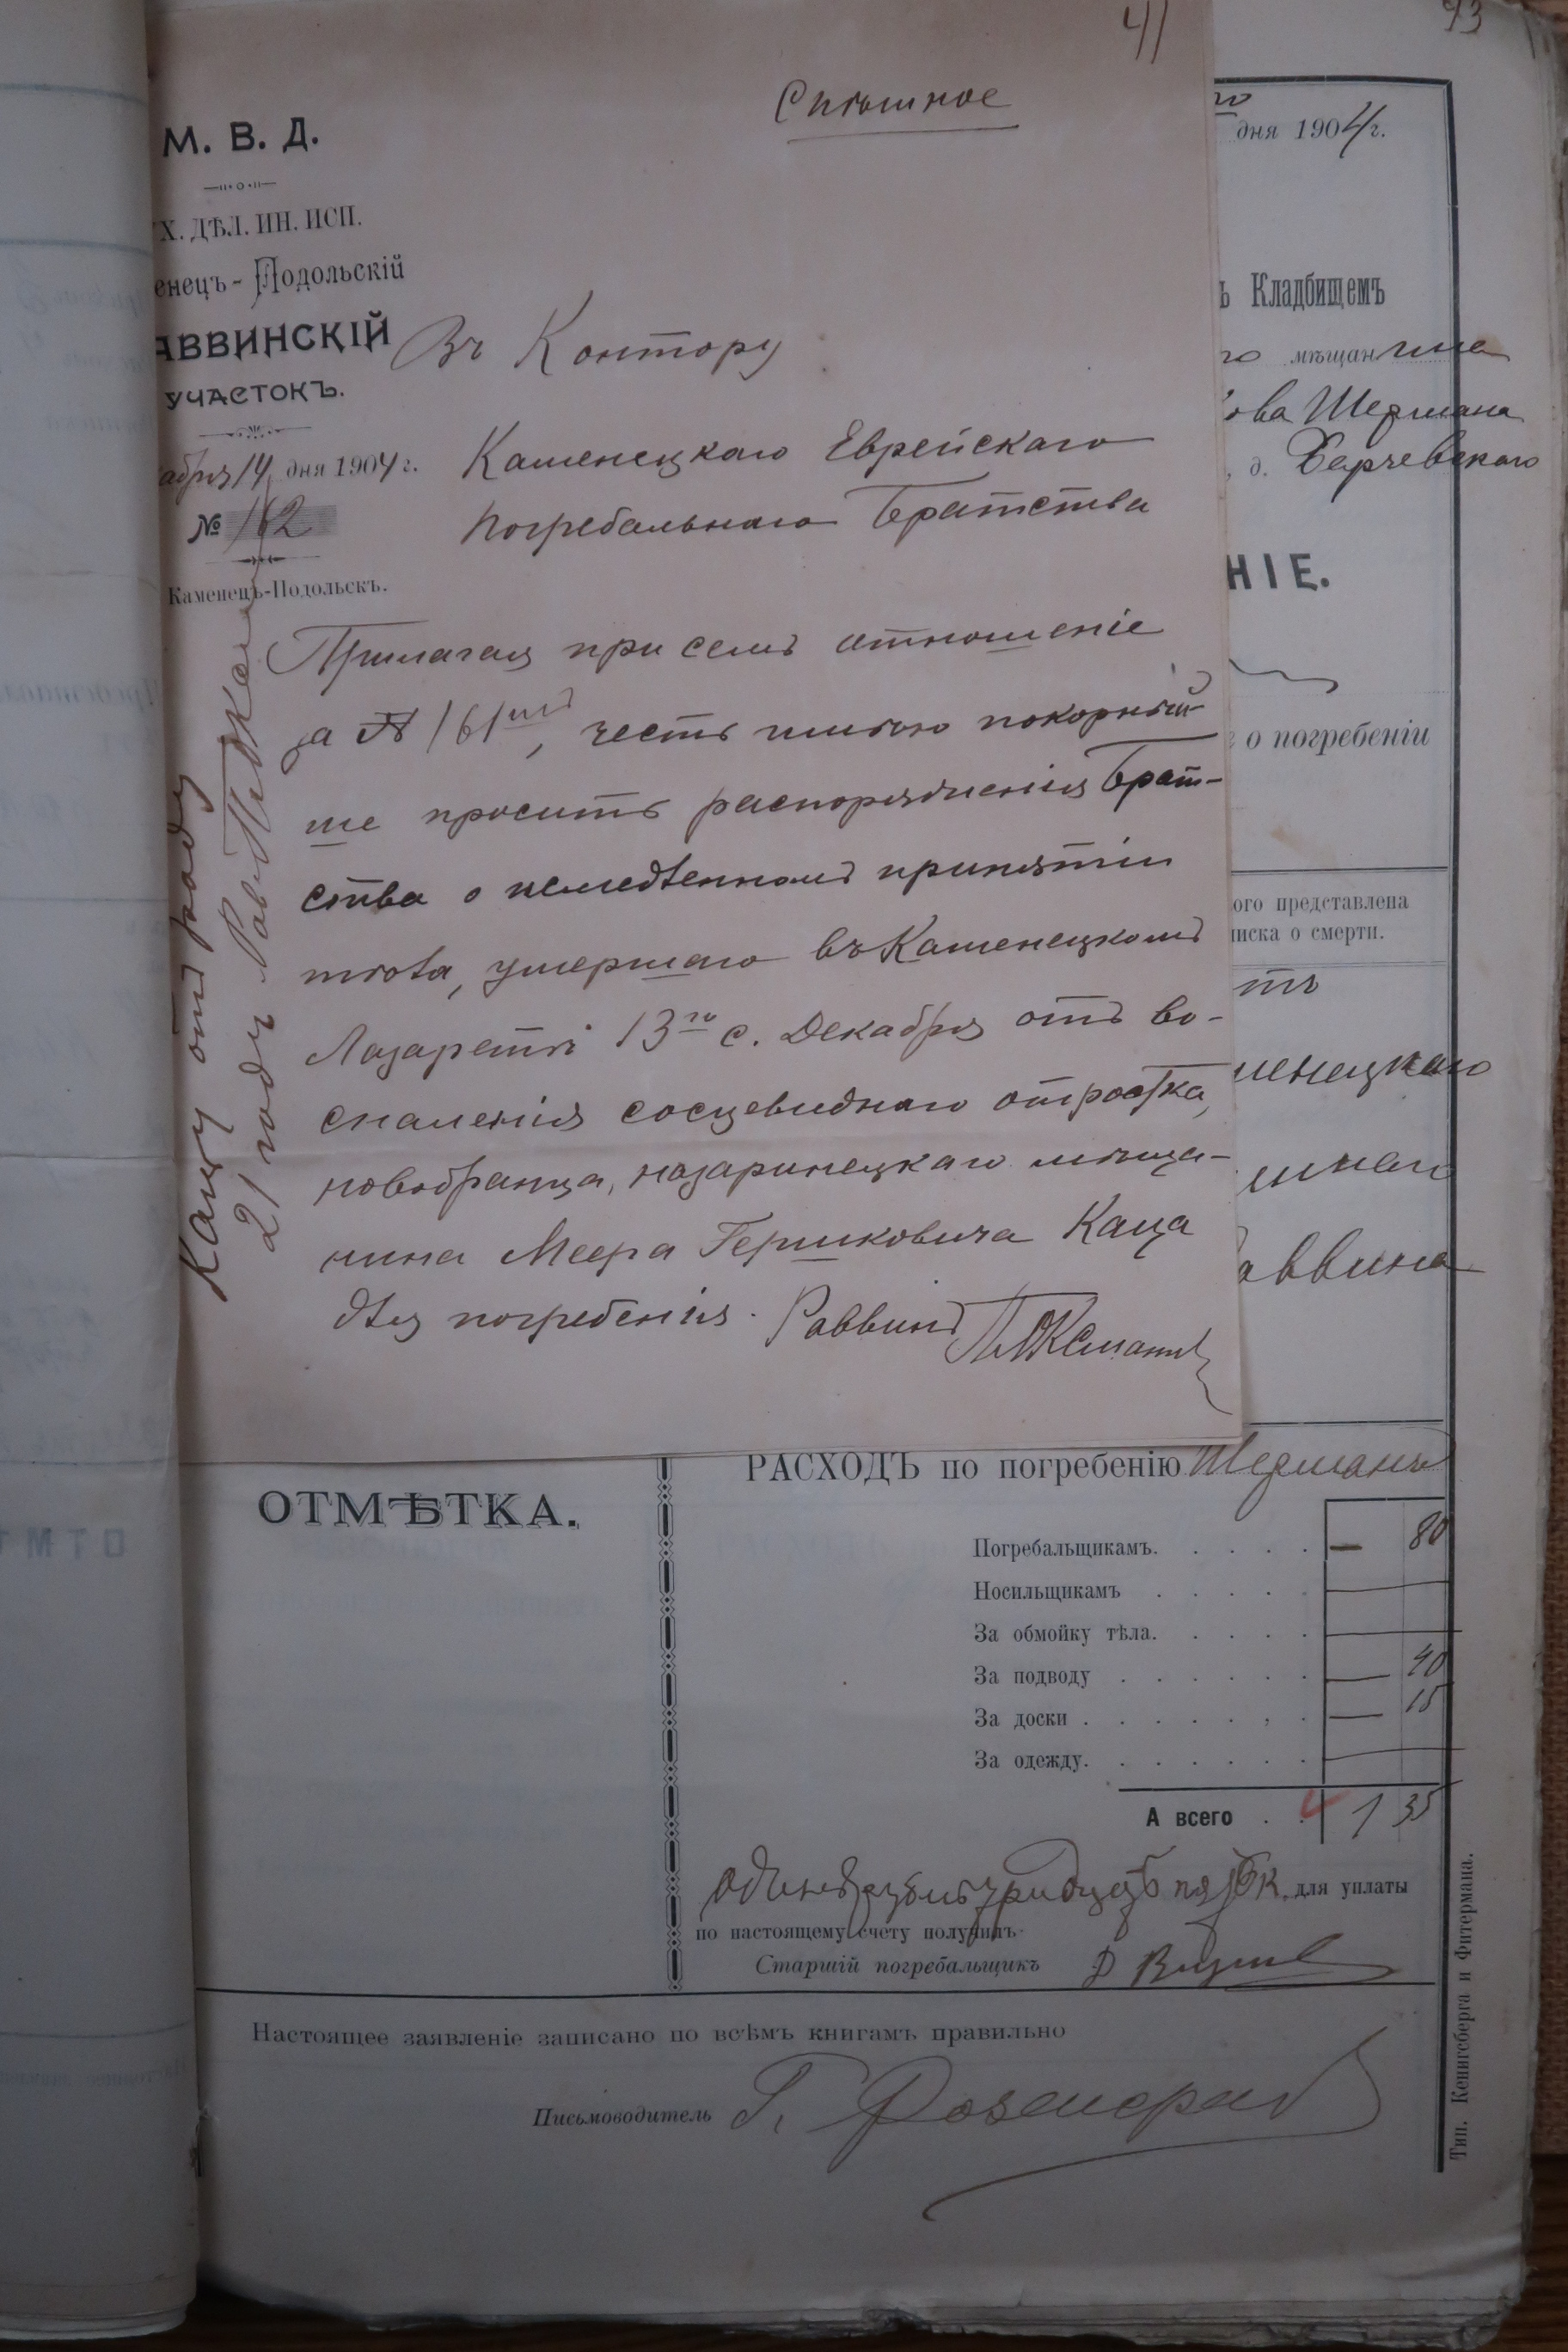 41
Спѣшное
М. В. Д.
Х. ДѢЛ. ИН. ИСП.
енецъ-Подольскій
АВВИНСКІЙ
УЧАСТОКЪ.
абря 14 дня 1904 г.
№ 162
Каменецъ-Подольскъ.
Въ Контору
Каменецкаго Еврейскаго
Погребальнаго Братства
Прилагая при семъ отношеніе
за № 161, честь имѣю покорнѣй-
ше просить распоряженія Брат-
ства о немедленномъ принятіи
тѣла, умершаго въ Каменецкомъ
Лазаретѣ 13го с. Декабря отъ во-
спаленія сосцевиднаго отростка,
новобранца, назаринецкаго мѣща-
нина Меера Гершковича Каца
для погребенія. Раввинъ
Кацу отъ роду
21 годъ Рав.
43
го
дня 1904 г.
ъ Кладбищемъ
го мѣщанина
ова Шермана
д.
НІЕ.
о погребеніи
ого представлена
иска о смерти.
тъ
менецкаго
аввина
ОТМѢТКА.
РАСХОДЪ по погребенію Шермана
Погребальщикамъ. — 80
Носильщикамъ
За обмойку тѣла.
За подводу — 40
За доски — 15
За одежду.
А всего 1 35
Одинъ рубль тридцать пять к. для уплаты
по настоящему счету получилъ
Старшій погребальщикъ
Настоящее заявленіе записано по всѣмъ книгамъ правильно
Письмоводитель Г.
Тип. Кенигсберга и Фитермана.